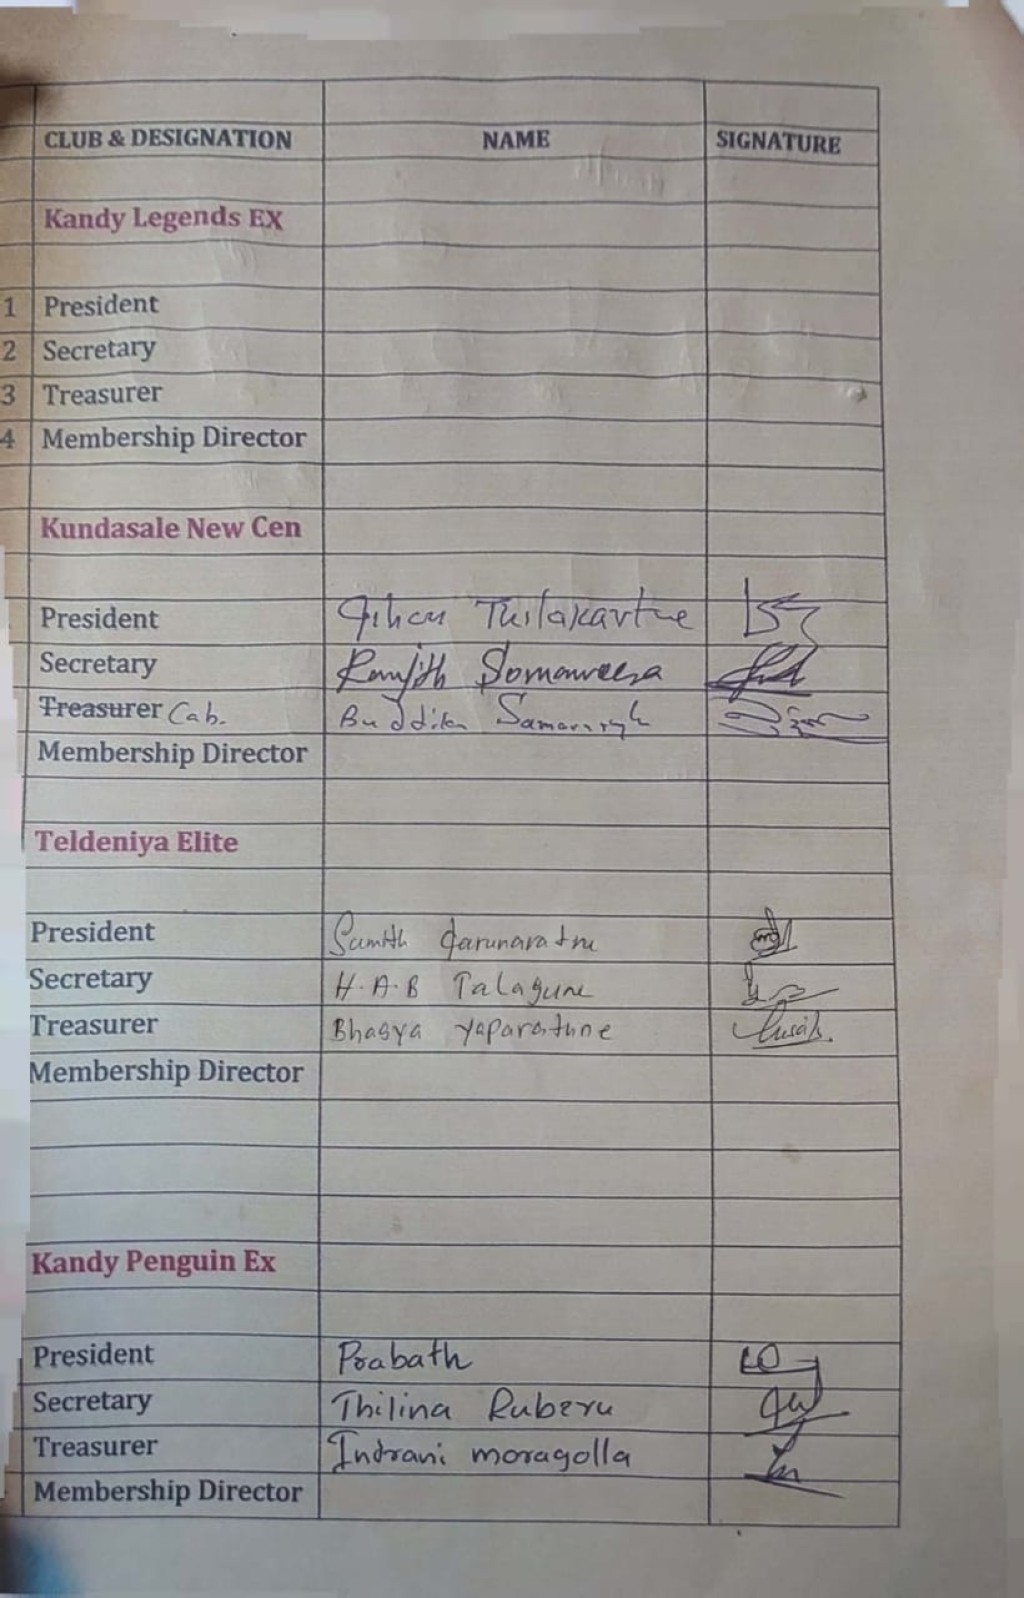 CLUB & DESIGNATION NAME SIGNATURE
Kandy Legends EX
1 President
2 Secretary
3 Treasurer
4 Membership Director
Kundasale New Cen
President Gihan Thilakartne
Secretary Ranjith Somaweera
Treasurer Cab. Buddika
Membership Director
Teldeniya Elite
President Sumith Qarunaratne
Secretary H.A.B Talagune
Treasurer Bhagya Yaparathne
Membership Director
Kandy Penguin Ex
President Prabath
Secretary Thilina Ruberu
Treasurer Indrani moragolla
Membership Director